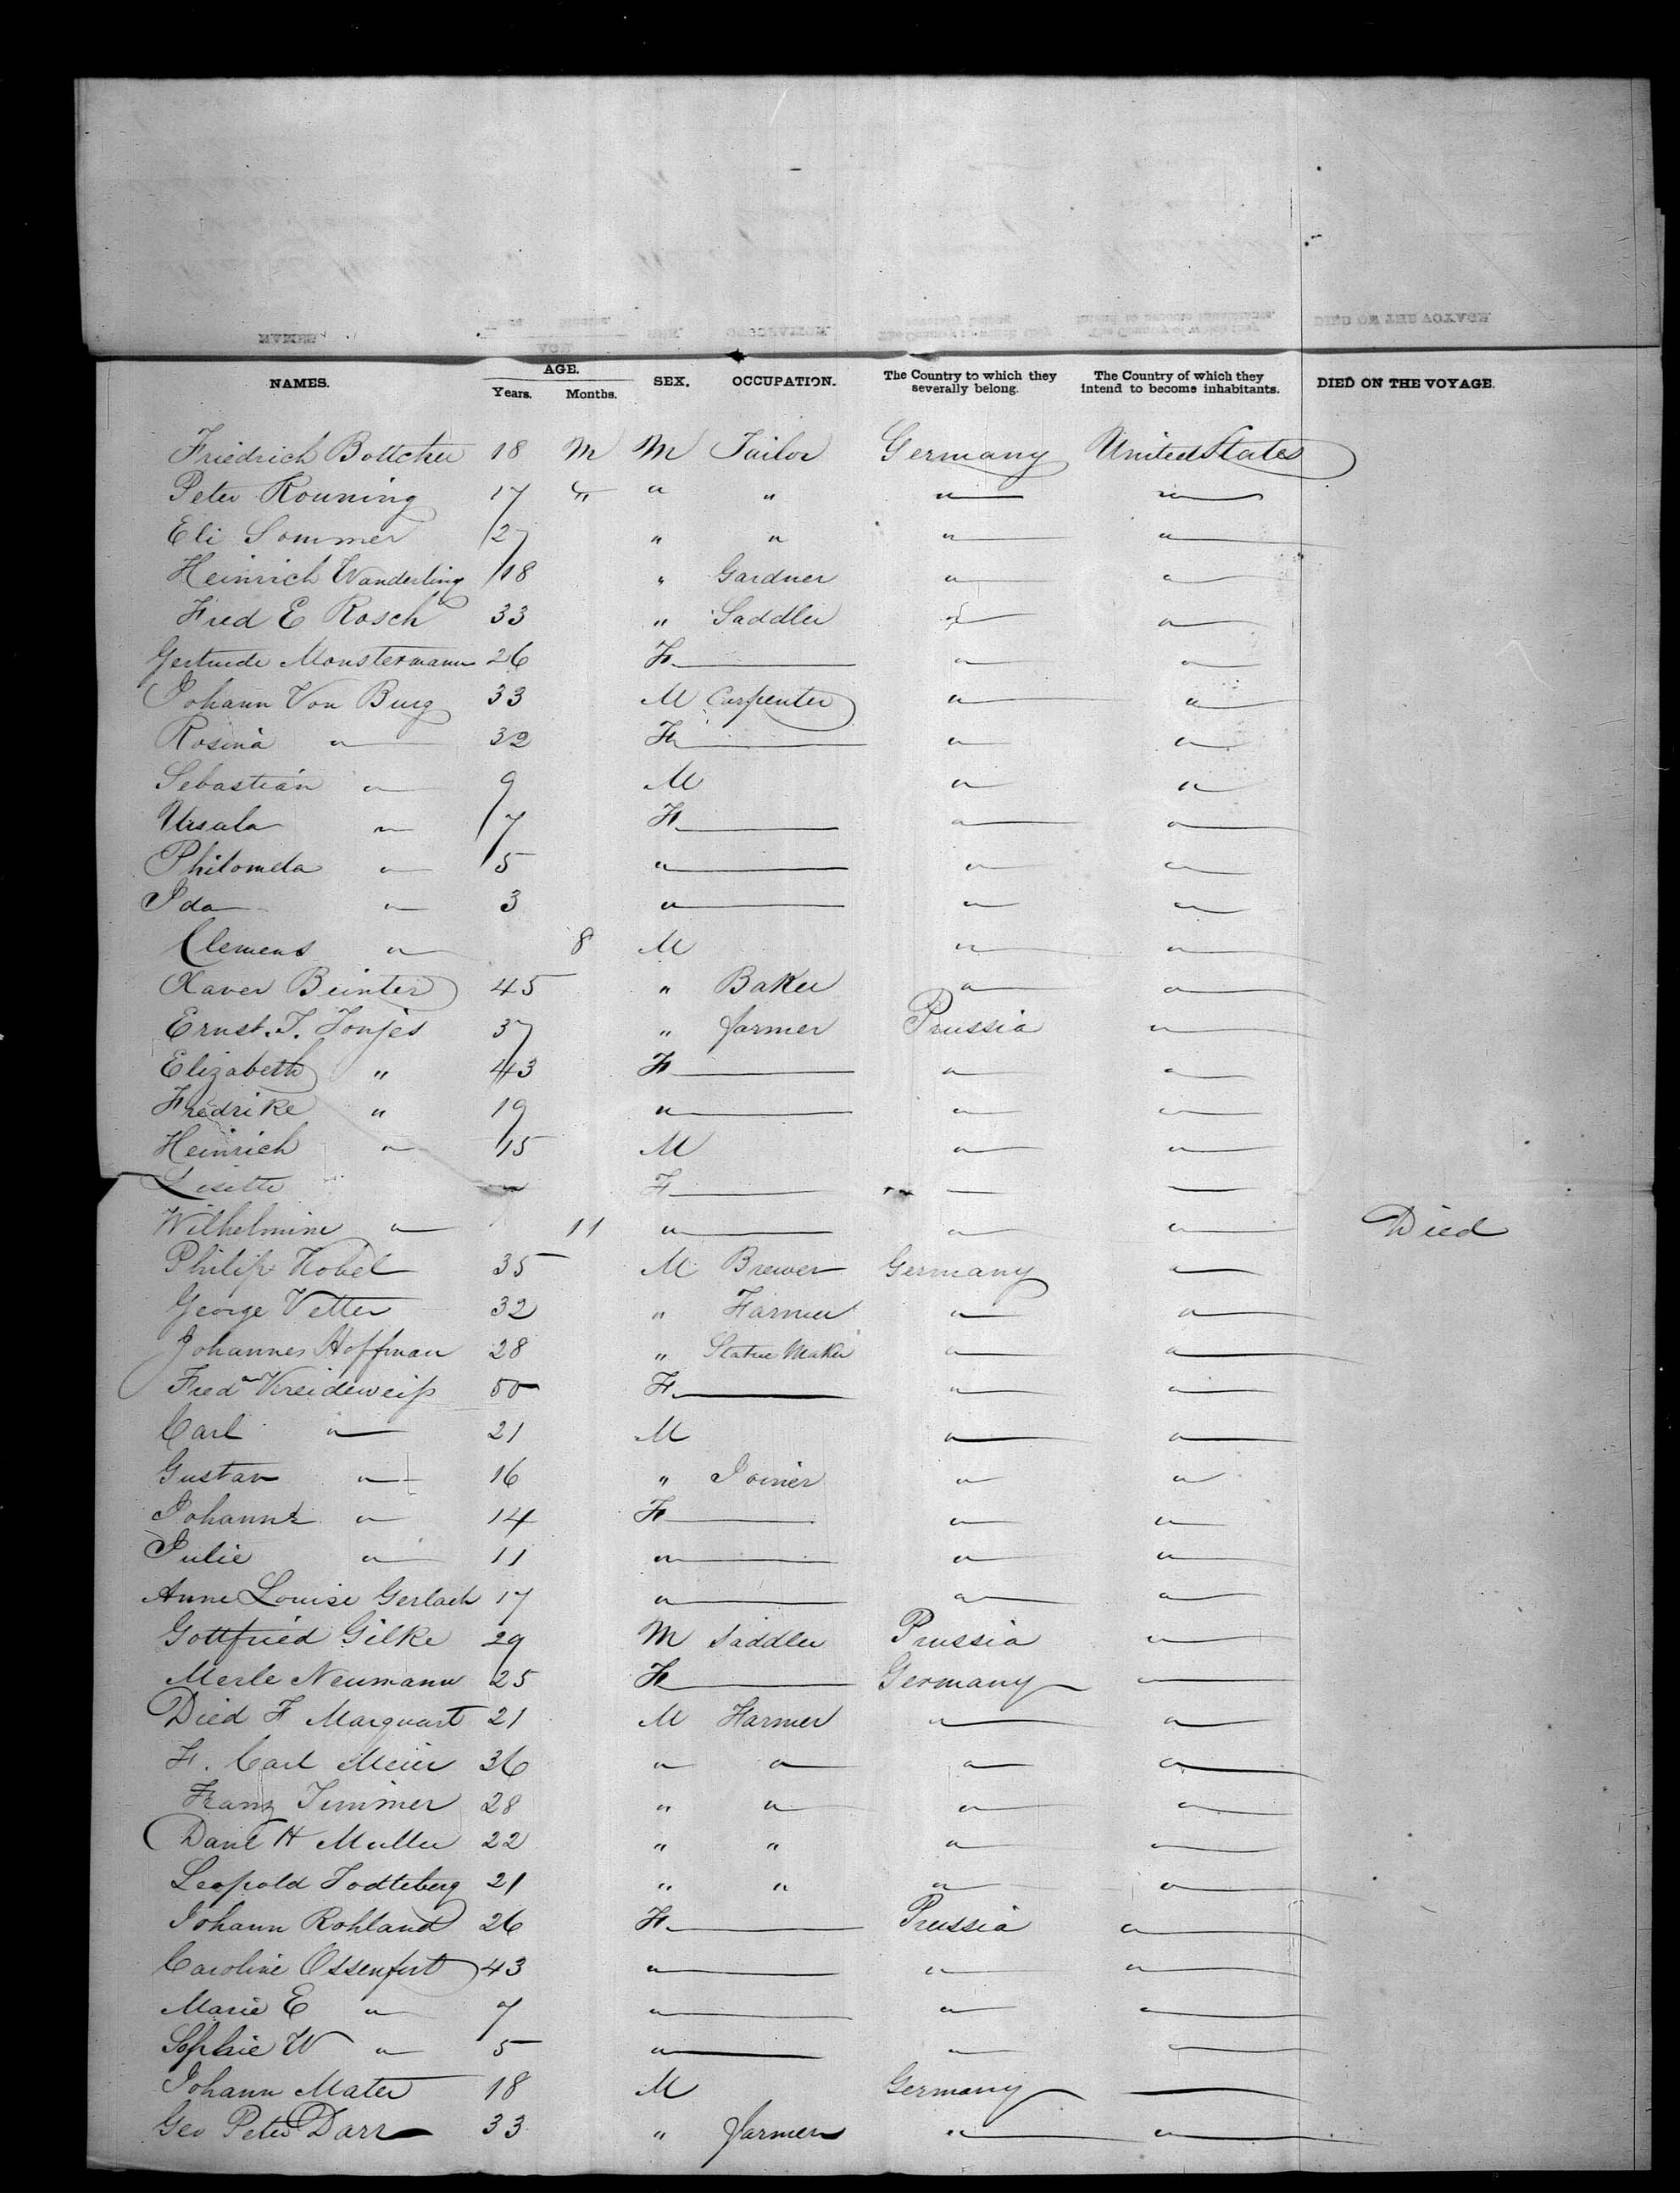 NAMES. AGE. Years. Months. SEX. OCCUPATION. The Country to which they severally belong. The Country of which they intend to become inhabitants. DIED ON THE VOYAGE.
Friedrich Bottcher 18 M M Tailor Germany United States
Peter Rouning 17 " " " " "
Eli Sommer 27 " " " "
Heinrich Wanderling 18 " Gardner " "
Fred E Rosch 33 " Saddler " "
Gertrude Monstermann 26 F " "
Johann Von Burg 33 M Carpenter " "
Rosina " 32 F " "
Sebastian " 9 M " "
Ursala " 7 F " "
Philomela " 5 " " "
Ida " 3 " " "
Clemens " 8 M " "
Xaver Beinter 45 " Baker " "
Ernst. T. Tonjes 37 " farmer Prussia "
Elizabeth " 43 F " "
Fredrike " 19 " " "
Heinrich " 15 M " "
Lisette F "
Wilhelmine " 11 " " " Died
Philip Kobel 35 M Brewer Germany "
George Vetter 32 " Farmer " "
Johannes Hoffman 28 " Statue Maker " "
Fred Kreideweiß 50 F " "
Carl " 21 M " "
Gustav " 16 " Joiner " "
Johanne " 14 F " "
Julie " 11 " " "
Anne Louise Gerlach 17 " " "
Gottfried Gilke 29 M Saddler Prussia "
Merle Neumann 25 F Germany "
Died F Marquart 21 M Farmer " "
F. Carl Meier 36 " " " "
Franz Timmer 28 " " " "
Danl H Muller 22 " " " "
Leopold Todteberg 21 " " " "
Johann Rohland 26 F Prussia "
Caroline Ossenfort 43 " " "
Marie E " 7 " " "
Sophie W " 5 " " "
Johann Mater 18 M Germany
Geo Peter Darr 33 " farmer " "